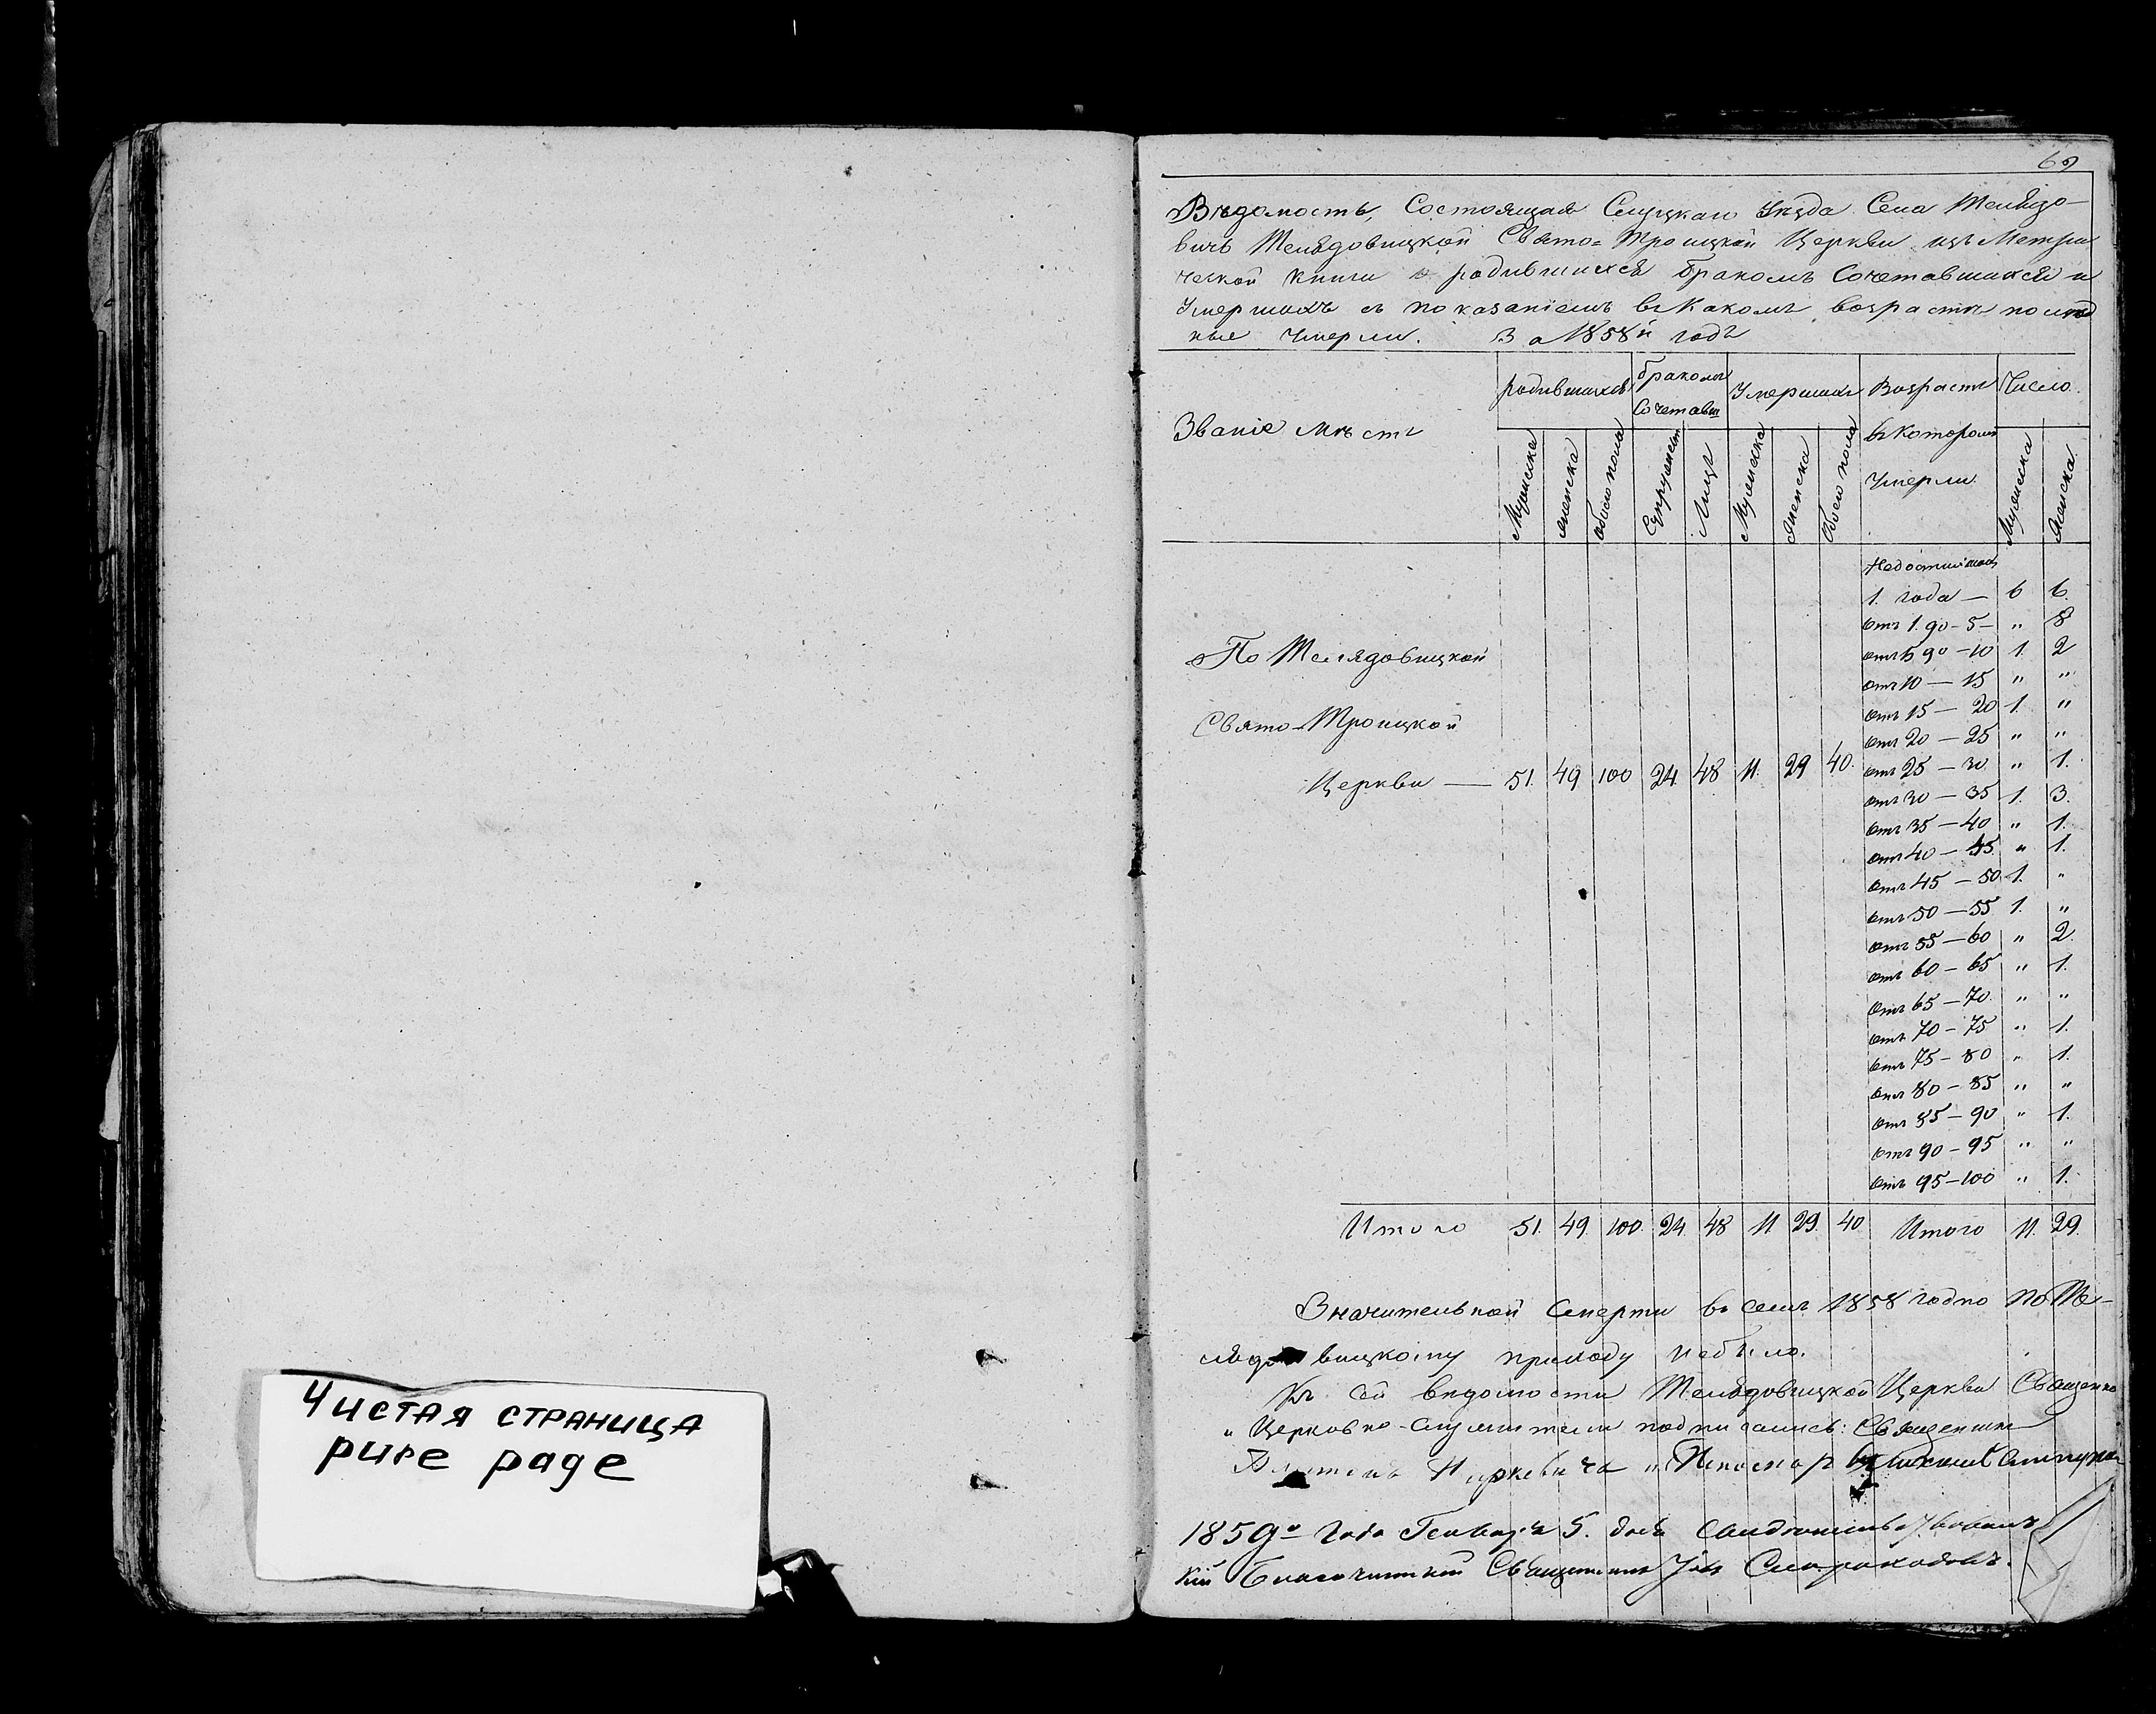 Чистая страница
pure page
69
Вѣдомость, Состоящая Слуцкаго Уѣзда Села Телядо-
вичъ Телядовицкой Свято-Троицкой Церкви изъ Метри
ческой Книги о родившихся бракомъ Сочетавшихся и
Умершихъ съ показаніемъ въ Какомъ возрастѣ
ные Умерли. За 1858й годъ
Званіе Мѣстъ
родившихся
бракомъ Сочетавш
Умершихъ
Возрастъ въ Которомъ Умерли
Число
Мужеска
женска
обоего пола
Супружеств
Лицъ
Мужеска
женска
Обоего пола
Мужеска
женска
Недостигшихъ
1. года — 6 6.
отъ 1. до - 5 - " 8
По Телядовицкой отъ 5 до - 10 1. 2
отъ 10 — 15 " "
Свято-Троицкой отъ 15 — 20 1. "
отъ 20 — 25 " "
Церкви — 51. 49 100 24 48 11. 29 40. отъ 25 — 30 " 1.
отъ 30 — 35 1. 3.
отъ 35 — 40 " 1.
отъ 40 — 45 " 1.
отъ 45 — 50 1. "
отъ 50 — 55 1. "
отъ 55 — 60 " 2.
отъ 60 — 65 " 1.
отъ 65 — 70 " "
отъ 70 — 75 " 1.
отъ 75 — 80 " 1.
отъ 80 — 85 " "
отъ 85 — 90 " 1.
отъ 90 — 95 " "
отъ 95 — 100 " 1.
Итого 51. 49. 100. 24. 48 11 29. 40 Итого 11. 29.
Значительной Смерти въ семъ 1858 годно по Те-
лядовицкому приходу небыло.
Къ сей ведомости Телядовицкой Церкви Священно
" Церковно-служители подписались: Священникъ
Пономарь
1859го Года Генваря 5. дня
кій Благочинный Священникъ